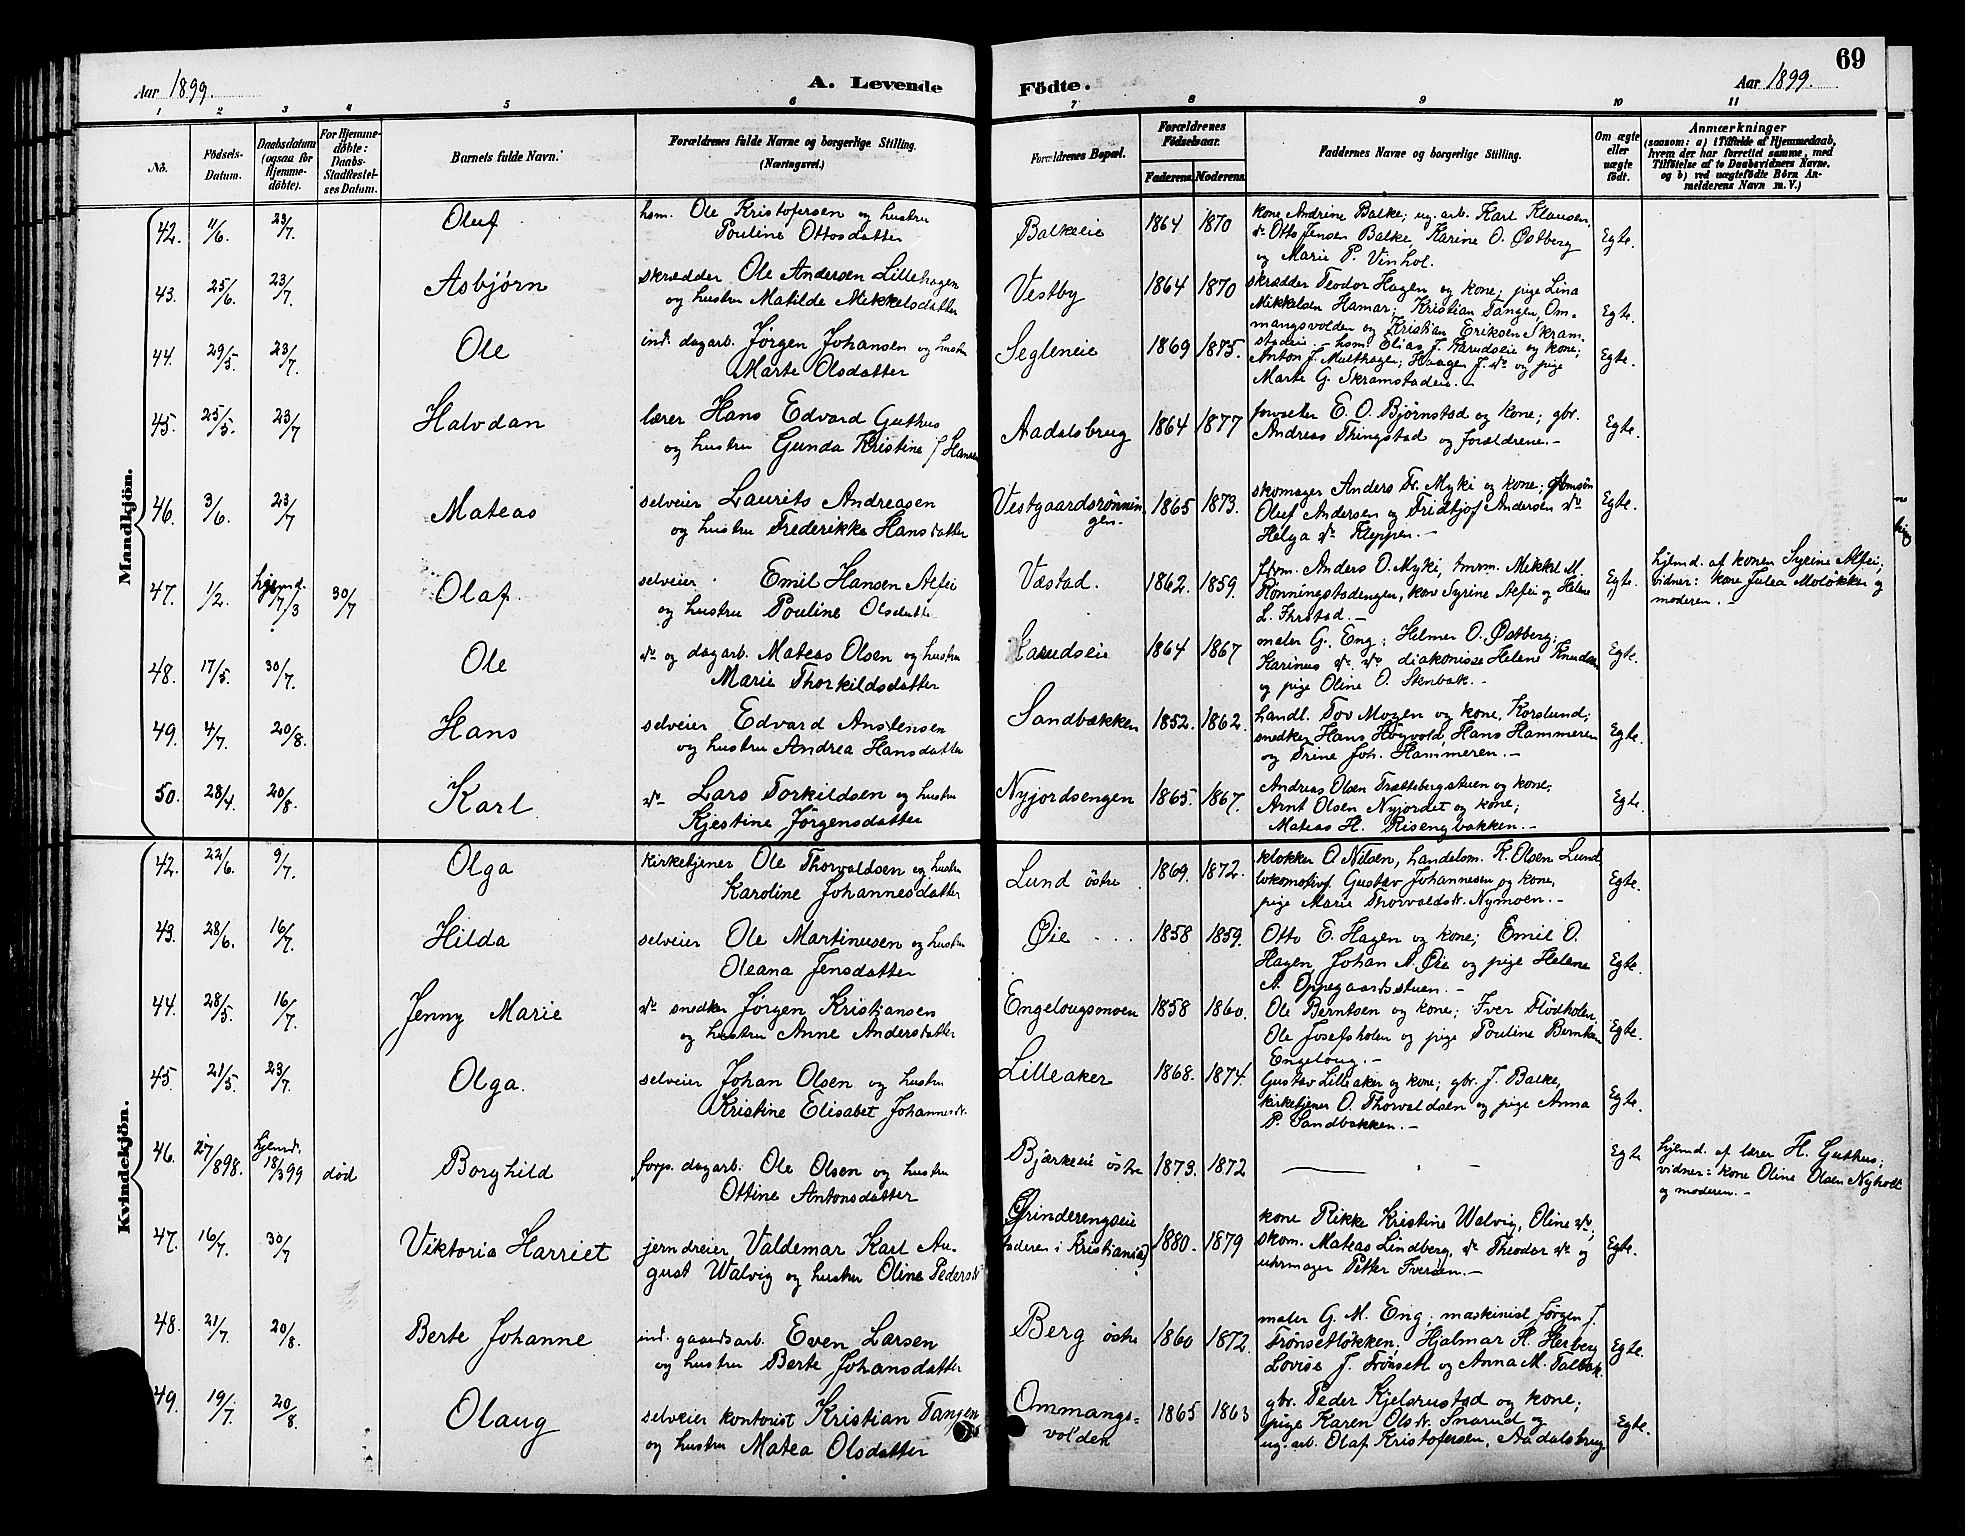 69
Aar 1899.
A. Levende Födte.
Aar 1899.
1 2 3 4 5 6 7 8 9 10 11
No.
Födsels-
Datum.
Daabsdatum
(ogsaa for
Hjemme-
döbte).
For Hjemme-
döbte:
Daabs-
Stadfæstel-
ses Datum.
Barnets fulde Navn.
Forældrenes fulde Navne og borgerlige Stilling.
(Næringsvei.)
Forældrenes Bopæl.
Forældrenes
Födselsaar.
Faderens. Moderens.
Faddernes Navne og borgerlige Stilling.
Om ægte
eller
uægte
født.
Anmærkninger
(saasom: a) i Tilfælde af Hjemmedaab,
hvem der har forrettet samme, med
Tilföielse af to Daabsvidners Navne,
og b) ved uægtefödte Börn An-
melderens Navn m. V.)
Mandkjön.
42. 11/6. 23/7. Oluf
hsm. Ole Kristofersen og hustru
Pouline Ottosdatter
Balkeeie 1864 1870
kone Andrine Balke; ug. arb. Karl Klausen,
do Otto Jensen Balke, Karine O. Østberg
og Marie P. Vinhol.
Egte.
43. 25/6. 23/7. Asbjørn
skrædder Ole Andersen Lillehagen
og hustru Matilde Mikkelsdatter
Vestby 1864 1870
skrædder Teodor Hagen og kone; pige Lina
Mikkelsen Hamar; Kristian Tangen, Om-
mangsvolden og Kristian Eriksen Skram-
stadeie.
Egte.
44. 29/5. 23/7. Ole
ind. dagarb. Jørgen Johansen og hustru
Marte Olsdatter
Segleneie 1869 1875.
hsm. Elias J. Farudseie og kone;
Anton J. Malthagen; Haagen J. do og pige
Marte G. Skramstadeie.
Egte.
45. 25/5. 23/7 Halvdan
lærer Hans Edvard Guthus
og hustru Gunda Kristine f Hansen
Aadalsbrug 1864 1877
forvalter E. O. Bjørnstad og kone; gbr.
Andreas Thingstad og forældrene.
Egte.
46. 3/6. 23/7 Mateas
selveier Laurits Andreasen
og hustru Frederikke Hansdatter
Vestgaardsrønnin
gen. 1865 1873.
skomager Anders Fr. Myki og kone;
Oluf Andersen og Fridtjof Andersen do
Helga do Kleppen.
Egte.
47. 1/2. hjemd. 17/3 30/7 Olaf.
selveier Emil Hansen Alfei
og hustru Pouline Olsdatte
Væstad. 1862. 1859.
Anders O. Myki, Mikkel M.
Rønningstadengen, kone Syrine Alfei og Helene
L.
Egte.
hjemd. af konen Syrine Alfei;
vidner: kone Julea Moløkken og
moderen.
48. 17/5. 30/7. Ole
do og dagarb. Mateas Olsen og hustru
Marie Thorkildsdatter
Farudseie 1864 1867
maler G. Eng; Helmer O. Østberg;
Karinus do do diakonisse Helene Knudsen
og pige Oline O. Stenbæk.
Egte.
49. 4/7. 20/8. Hans
selveier Edvard Anstensen
og hustru Andrea Hansdatter
Sandbækken 1852. 1862.
handl. Tov Mogen og kone, Korslund;
snedker Hans Høgvold, Hans Hammeren
og Trine Joh. Hammeren.
Egte.
50. 28/4. 20/8. Karl
do Lars Torkildsen og hustru
Kjestine Jørgensdatter
Nyjordsengen 1865. 1867.
Andreas Olsen Trættebergstuen og kone;
Arnt Olsen Nyjordet og kone;
Mateas H. Risengbakken.
Egte.
Kvindekjön.
42. 22/6. 9/7. Olga
kirketjener Ole Thorvaldsen og hustru
Karoline Johannesdatter
Lund østre 1869. 1872.
klokker O. Nilsen, handelsm. K. Olsen Lund
lokomotivf. Gustav Johannesen og kone,
pige Marie Thorvaldsdt. Nymoen.
Egte.
43. 28/6. 16/7. Hilda
selveier Ole Martinusen og hustru
Oleana Jensdatter
Øie 1858 1859.
Otto E. Hagen og kone; Emil O.
Hagen, Johan N. Øie og pige Helene
A. Oppegaardsstuen.
Egte.
44. 28/5. 16/7. Jenny Marie
do snedker Jørgen Kristiansen
og hustru Anne Andersdatter
Engelougsmoen 1858 1860.
Ole Berntsen og kone; Iver Flødholen,
Ole Josefsholen og pige Pouline Berntsen
Engeloug.
Egte.
45. 21/5. 23/7. Olga.
selveier Johan Olsen og hustru
Kristine Elisabet Johannesdt.
Lilleaker 1868. 1874.
Gustav Lilleaker og kone; gbr. J. Balke,
kirketjener O. Thorvaldsen og pige Anna
P. Sandbakken.
Egte.
46. 27/8 98. hjemd. 18/3 99 død Borghild
forp. dagarb. Ole Olsen og hustru
Ottine Antonsdatter
Bjærkeeie østre 1873. 1872
Egte
hjemd. af lærer H. Guthus;
vidner: kone Oline Olsen Nyholt
og moderen.
47. 16/7. 30/7 Viktoria Harriet
jerndreier Valdemar Karl Au-
gust Walvig og hustru Oline Pedersdt
Grinderengseie
faderen i Kristiania) 1880. 1879
kone Rikke Kristine Walvig, Oline do;
skom. Mateas Lindberg, do Theodor do og
uhrmager Petter Iversen.
Egte.
48. 21/7. 20/8. Berte Johanne
ind. gaardsarb. Even Larsen
og hustru Berte Johansdatter
Berg østre 1860 1872.
maler G. M. Eng; maskinist Jørgen J.
Trønsetløkken; Hjalmar H. Herberg
Lovise J. Trønset og Anna M.
Egte.
49. 19/7. 20/8 Olaug
selveier kontorist Kristian Tangen
og hustru Matea Olsdatter
Ommangs-
volden 1865 1863
gbr. Peder Kjelsrustad og kone;
pige Karen Olsdt. Snarud og
ug. arb. Olaf Kristofersen, Aadalsbrug
Egte.